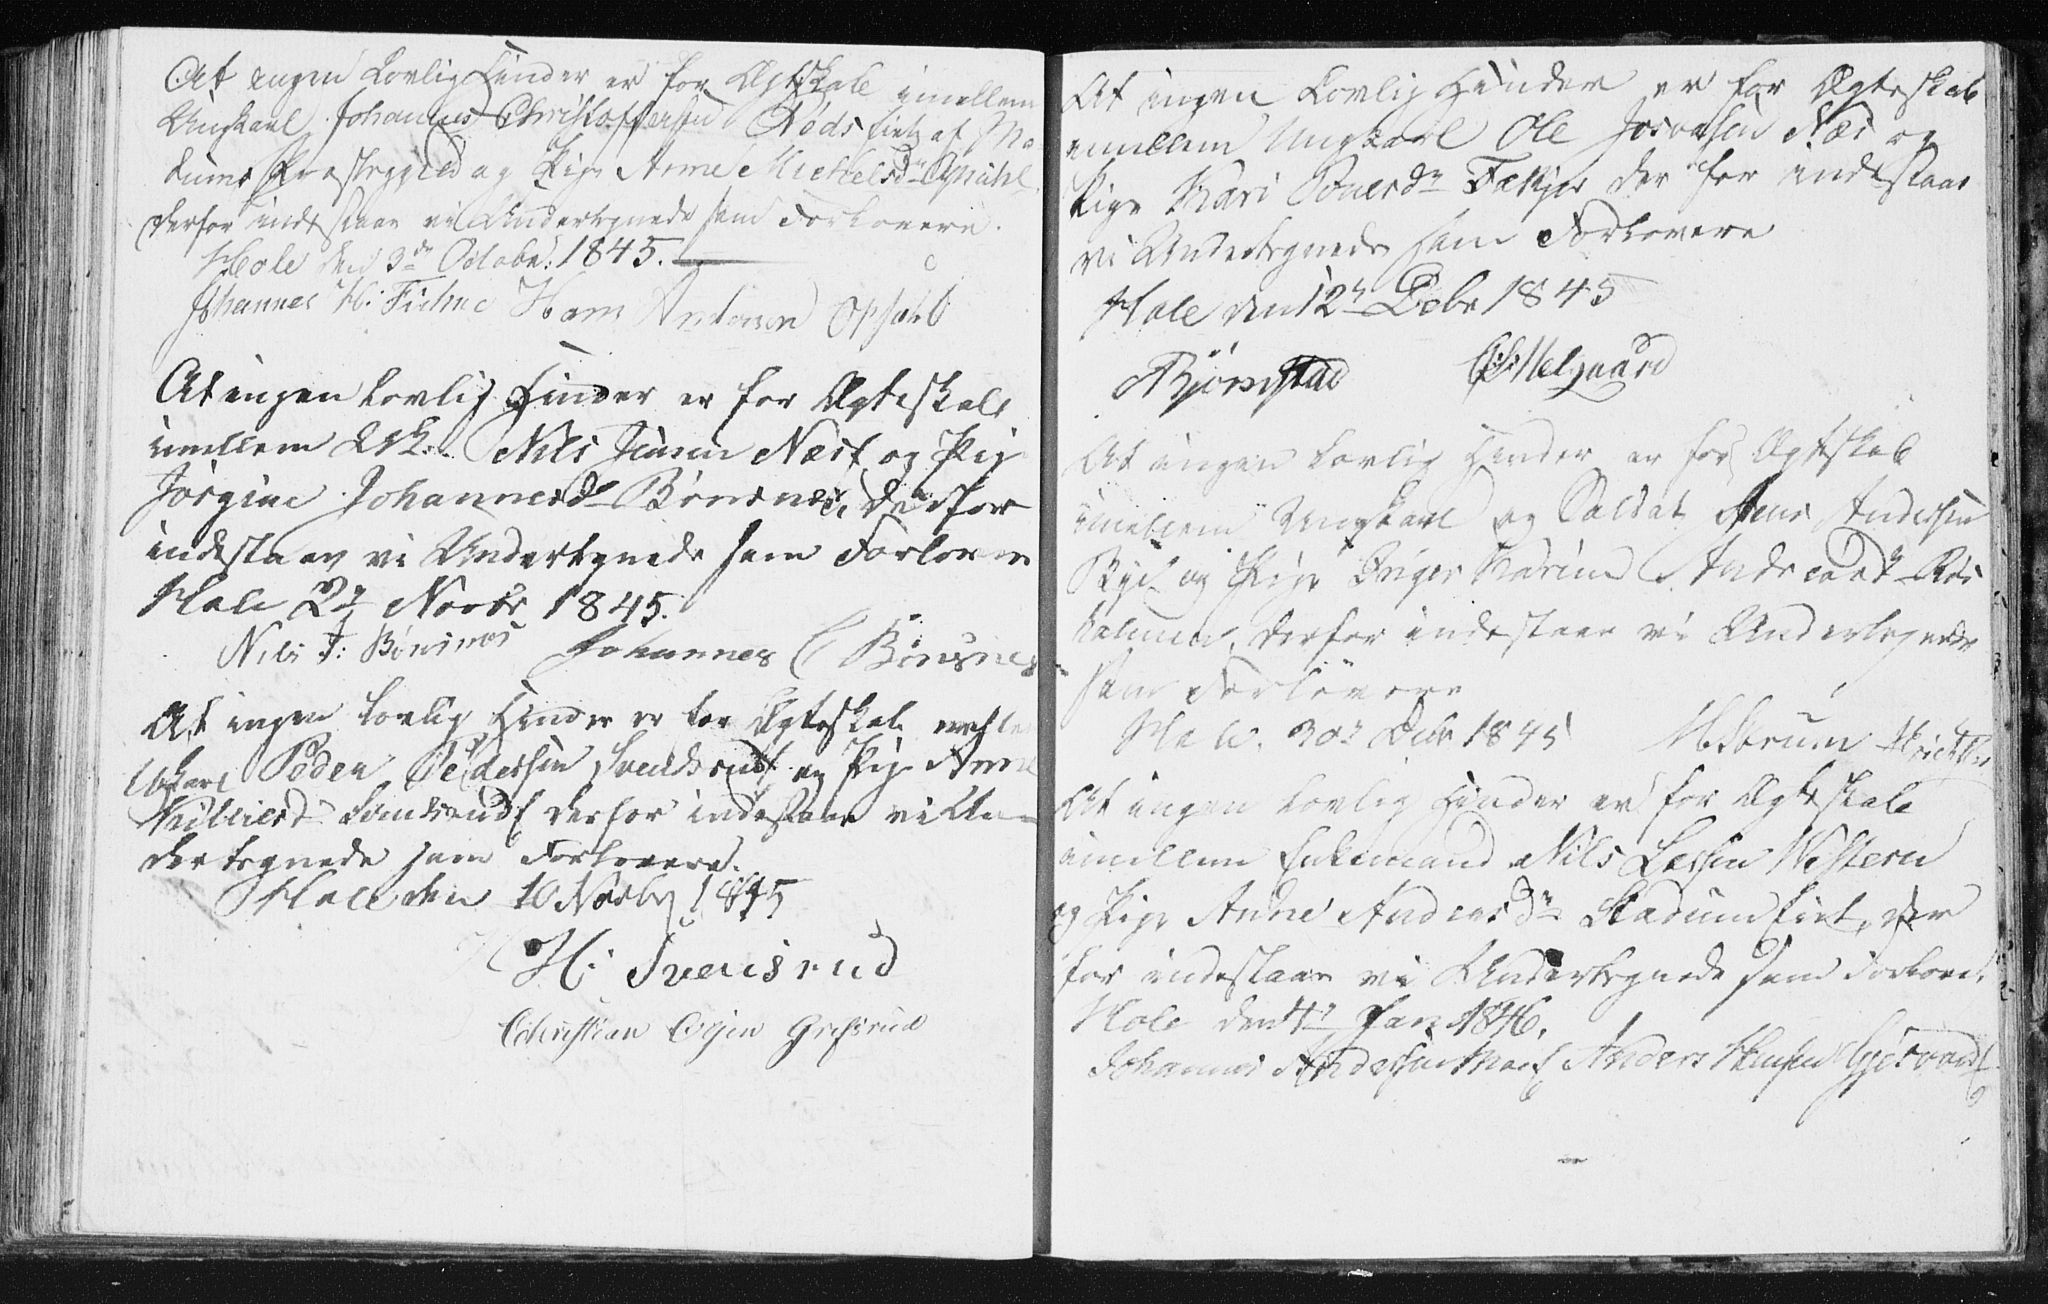 At ingen Lovlig Hinder er for Ægtskab imellem
Ungkarl Johannes Christoffersen Røds Eie af Mo-
dums Præstegjeld og Pige Anne Michelsdr
derfor indestaar vi Undertegnede som Forlovere.
Hole den 3de Octobr: 1845.
Johannes H: Hans Anderson Opsahl
At ingen Lovlig Hinder er for Ægteskab
imellem Nils Jensen Næsf og Pig
Jørgine Johannesd Bønsnes, derfor
indestaar vi Undertegnede som Forlovere
Hole 27 Novbr 1845.
Nils J: Bønsnes Johannes C Bønsnes
At ingen Lovlig Hinder er for Ægteskab
Peder Pedersen og Pige Anne
derfor indestaar vi Un-
dertegnede som Forlovere.
Hole den 10 Novbr 1845
H: Svensrud
Christian Olsen Gresrud
At ingen Lovlig Hinder er for Ægteskab
imellem Ungkarl Ole Josvasen Næs og
Pige Kari Povelsdr der for indestaar
vi Undertegnede som Forlovere
Hole den 12te Debr 1845
Bjørnstad Melgaard
At ingen Lovlig Hinder er for Ægtskab
imellem Ungkarl og Soldat Jens Andersen
og Pige Inger Karine Andersdr
derfor indestaar vi Undertegnede
som Forlovere
Hole. 30te Debr 1845
At ingen Lovlig Hinder er for Ægteskab
imellem Enkemand Nils Larsen Western
og Pige Anne Andersdr Stadum Eiet, der
for indestaar vi Undertegnede som Forlover
Hole den 4de Jan 1846.
Johannes Andersen Moe Anders Hansen